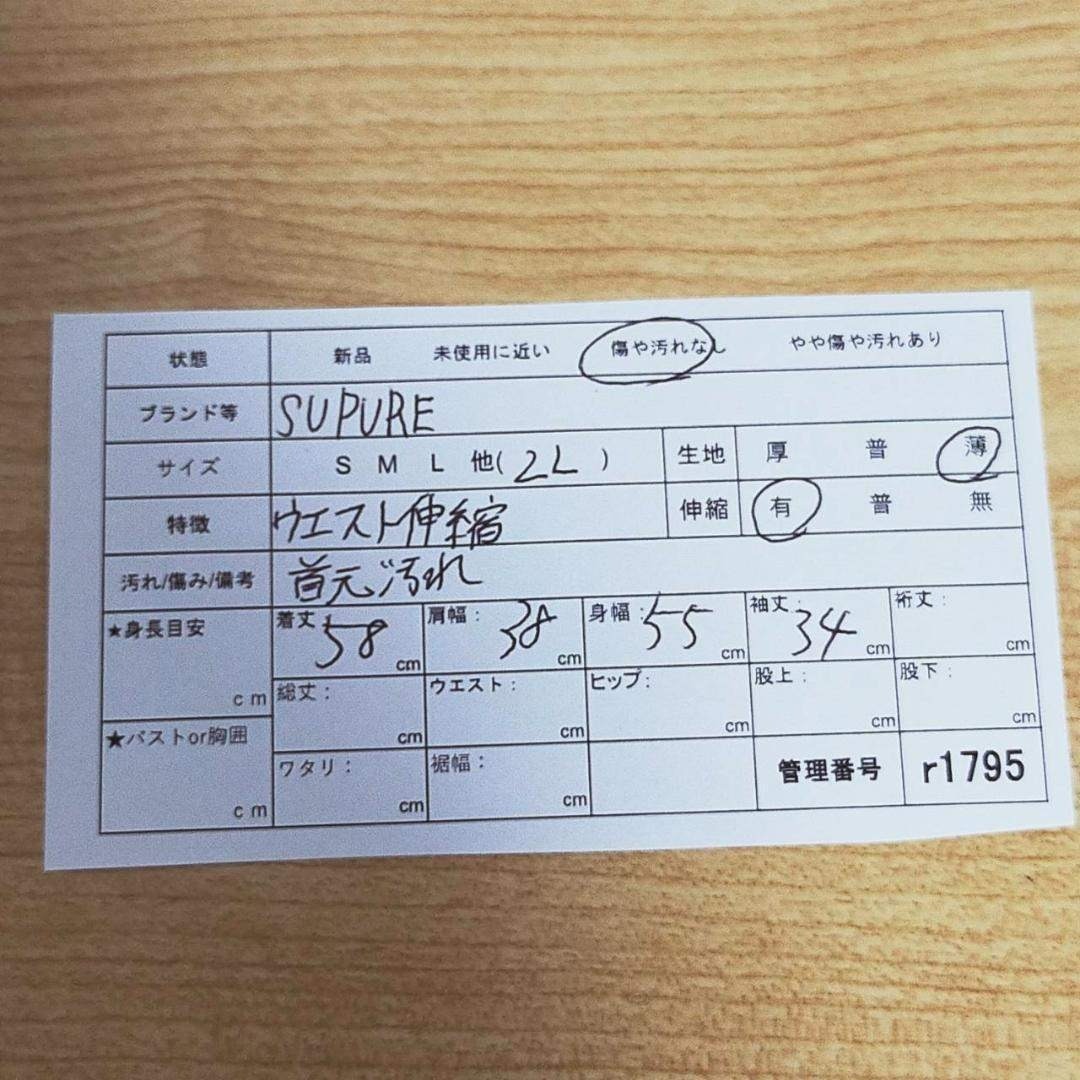 状態 新品 未使用に近い 傷や汚れなし やや傷や汚れあり
ブランド等 SUPURE
サイズ S M L 他(2L) 生地 厚 普 薄
特徴 ウエスト伸縮 伸縮 有 普 無
汚れ/傷み/備考 首元汚れ
★身長目安 cm 着丈: 58 cm 肩幅: 38 cm 身幅: 55 cm 袖丈: 34 cm 裄丈: cm
総丈: cm ウエスト: cm ヒップ: cm 股上: cm 股下: cm
★バストor胸囲 cm ワタリ: cm 裾幅: cm 管理番号 r1795